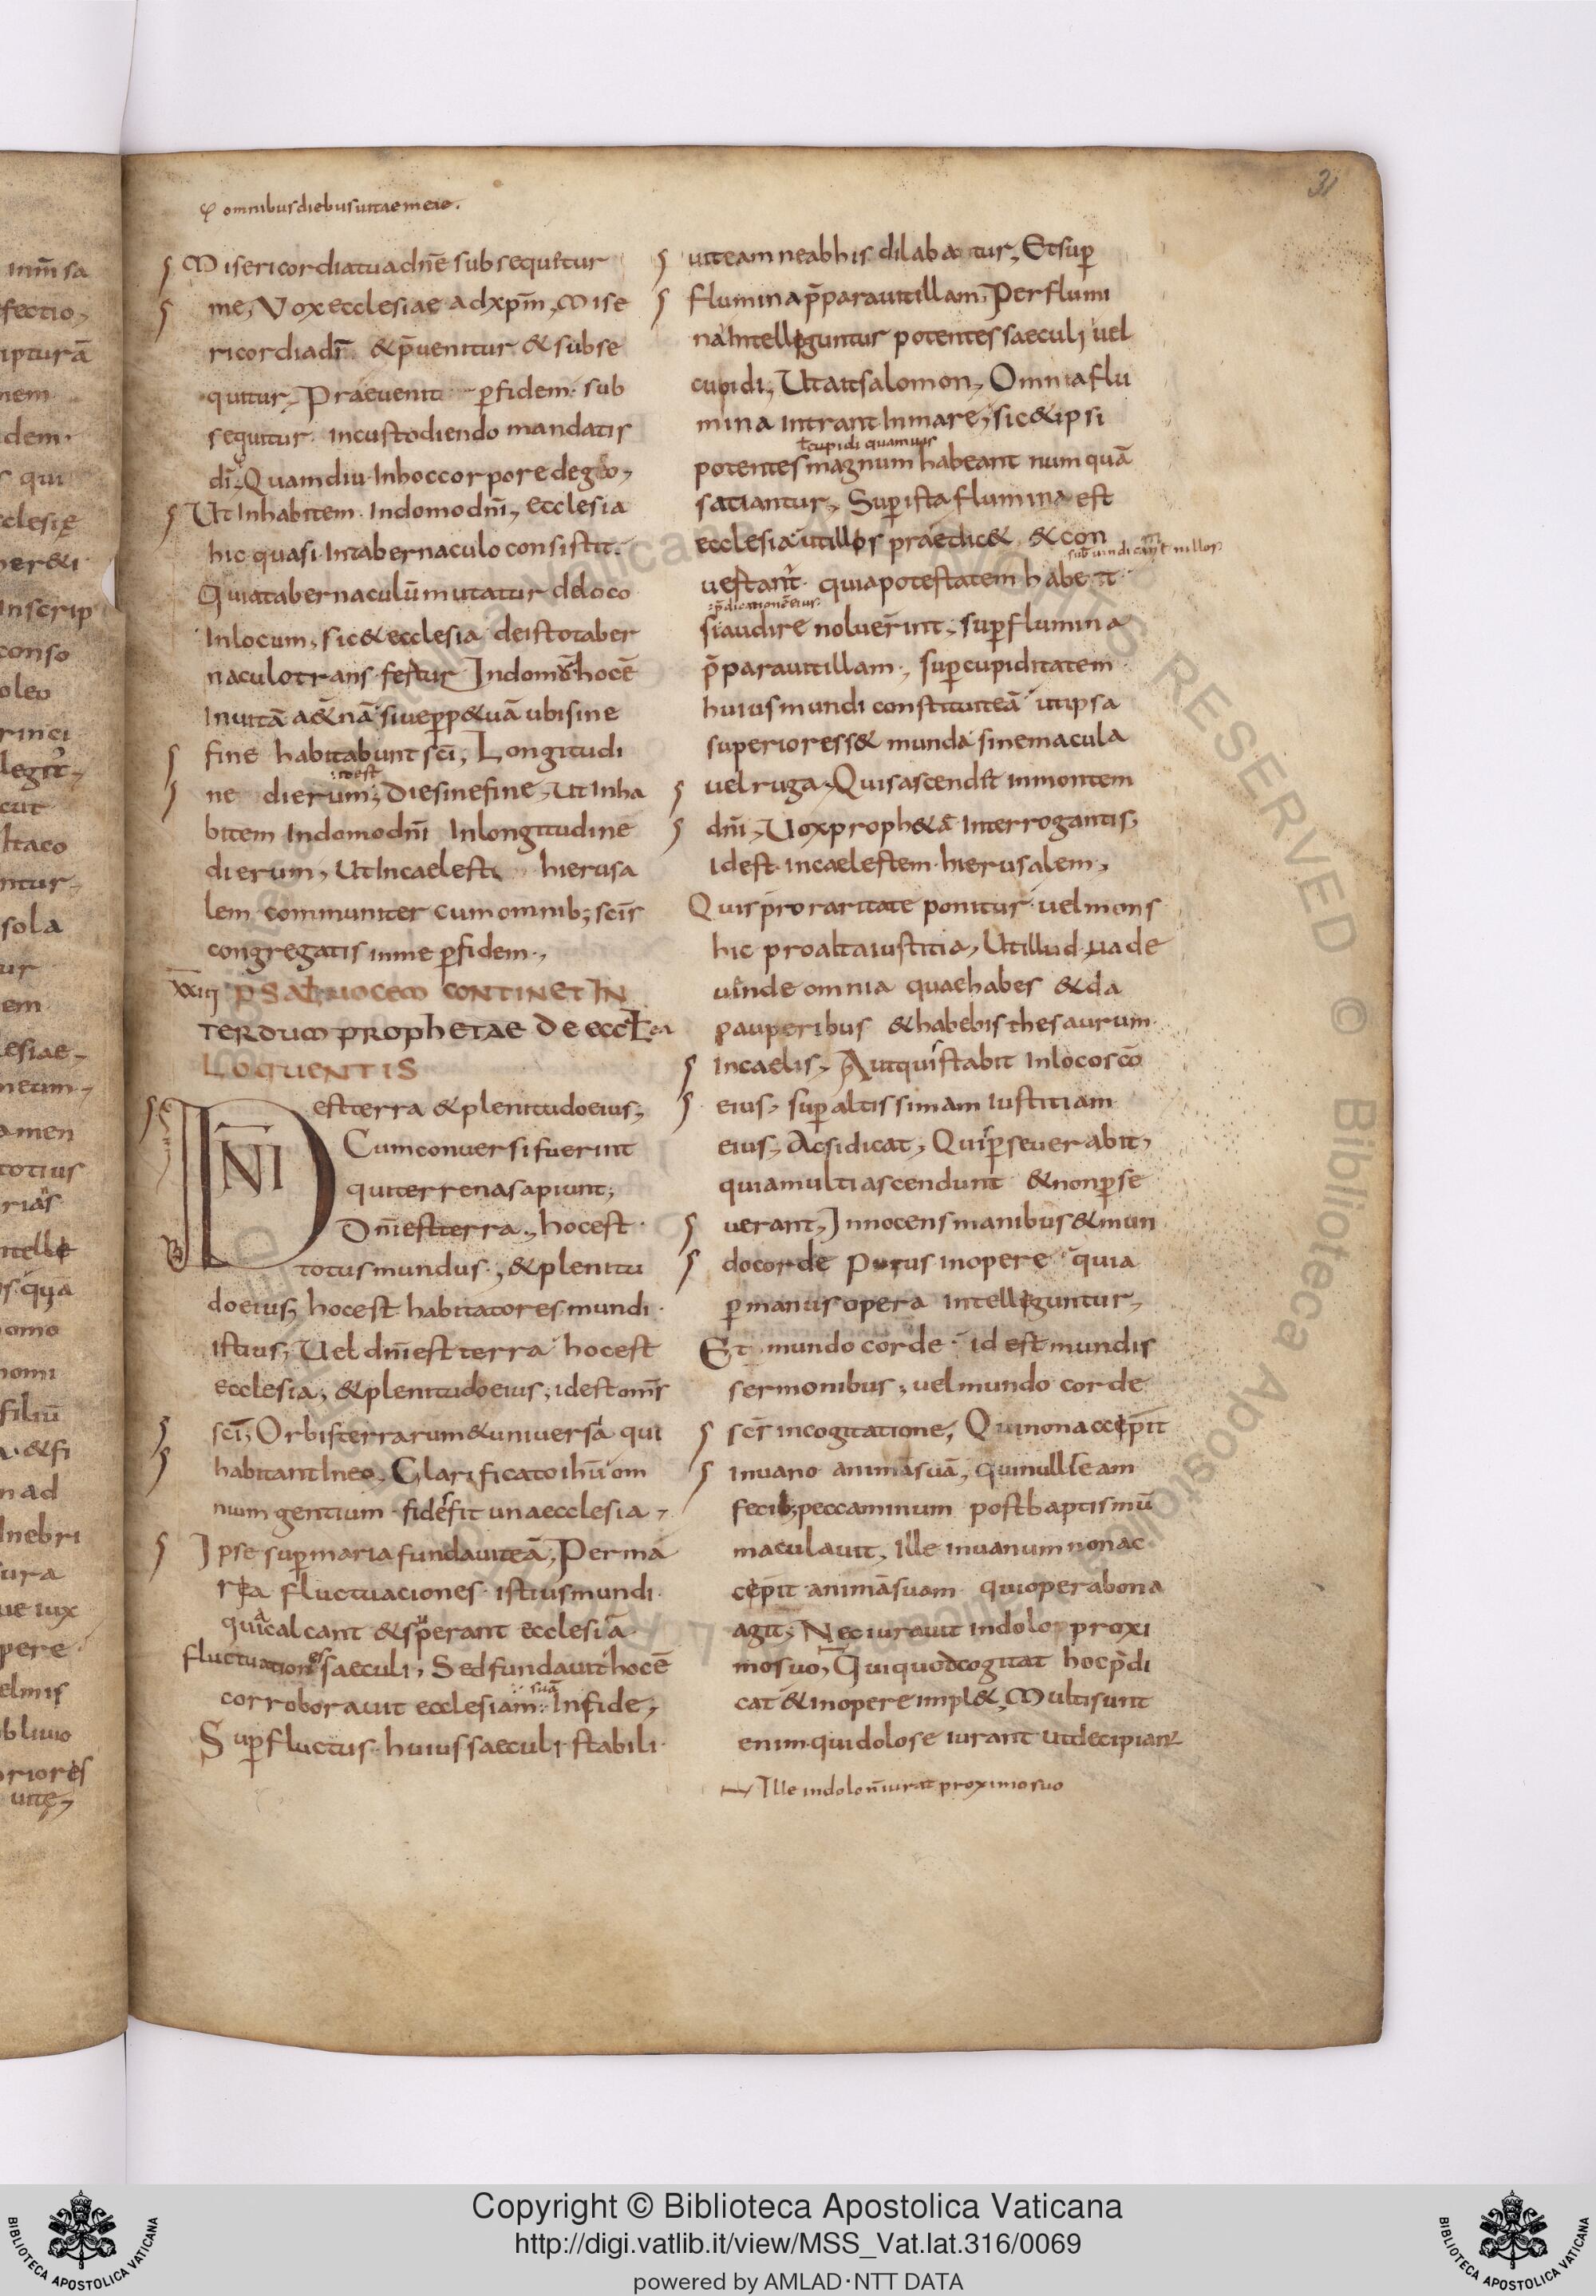 omnibus diebus uitae meae.
Misericordia tua dn̄e subsequitur
me, Vox ecclesiae ad xpm̄, Mise
ricordia dī & p̄uenitur & subse
quitur, Praeuenit p̄ fidem. sub
sequitur. in custodiendo mandatis
dī, Quamdiu in hoc corpore dego,
Ut inhabitem in domo dn̄i, ecclesia
hic quasi in tabernaculo consistit.
Quia tabernaculū mutatur de loco
in locum, sic & ecclesia de isto taber
naculo transfertur In domo hoc ē
in uitā a&nā siue p̄p&uā ubi sine
fine habitabunt scī, Longitudi
id est
ne dierum; Die sine fine, Ut inha
bitem in domo dn̄i in longitudine
dierum, Ut in caelesti hierusa
lem communiter cum omnib; scīs
congregatis in me p̄ fidem.,
XXIII PSALMUS VOCEM CONTINET IN
TERDUM PROPHETAE DE ECCL
LOQUENTIS
DN̄I est terra & plenitudo eius;
Cum conuersi fuerint
qui terrena sapiunt;
Dn̄i est terra., hoc est
totus mundus., & plenitu
do eius; hoc est habitatores mundi
istius; Uel dn̄i est terra hoc est
ecclesia; & plenitudo eius; id est om̄s
scī; Orbis terrarum & uniuersa qui
habitant in eo. Clarificato ihū om
nium gentium fides fit una ecclesia,
Ipse sup̄ maria fundauit eā; Per ma
ria fluctuaciones istius mundi.
quia calcant & sup̄erant ecclesiā
fluctuationes saeculi, Sed fundauit hoc ē
suā
corroborauit ecclesiam in fide,
Sup̄ fluctus huius saeculi stabili
31
uit eam ne ab his dilabatur, Et sup̄
flumina p̄parauit illam, Per flumi
na intelleguntur potentes saeculi uel
cupidi; Ut ait salomon, Omnia flu
mina intrant in mare, sic & ipsi
ł cupidi quamuis
potentes magnum habeant numquā
satiantur, Sup̄ ista flumina est
ecclesia ut illos praedic& & con
uertant. quia potestatem habent
p̄dicationē eius
si audire noluerint, sup̄ flumina
p̄parauit illam., sup̄ cupiditatem
huius mundi constituit eā ut ipsa
superior ess& munda sine macula
uel ruga, Quis ascendit in montem
dn̄i, Uox proph&ā interrogantis,
id est in caelestem hierusalem,
Quis pro raritate ponitur uel mons
hic pro alta iustitia, Ut illud uade
uende omnia quae habes & da
pauperibus & habebis thesaurum
in caelis, Aut quis stabit in loco scō
eius, sup̄ altissimam iustitiam
eius, Ac si dicat, Quis p̄seuerabit,
quia multi ascendunt & non p̄se
uerant, Innocens manibus & mun
do corde Purus in opere quia
p̄ manus opera intelleguntur,
Et mundo corde id est mundis
sermonibus, uel mundo corde
scīs in cogitatione, Qui non accepit
in uano animā suā, qui nullis eam
fecib; peccaminum post baptismū
maculauit, Ille in uanum non ac
cepit animā suam qui opera bona
agit; Nec iurauit in dolo proxi
mo suo, Qui quod cogitat hoc p̄di
cat & in opere impl&, Multi sunt
enim qui dolose iurant ut decipiant
Ille in dolo n̄ iurat proximo suo
Copyright © Biblioteca Apostolica Vaticana
http://digi.vatlib.it/view/MSS_Vat.lat.316/0069
powered by AMLAD·NTT DATA
BIBLIOTECA APOSTOLICA VATICANA
BIBLIOTECA APOSTOLICA VATICANA